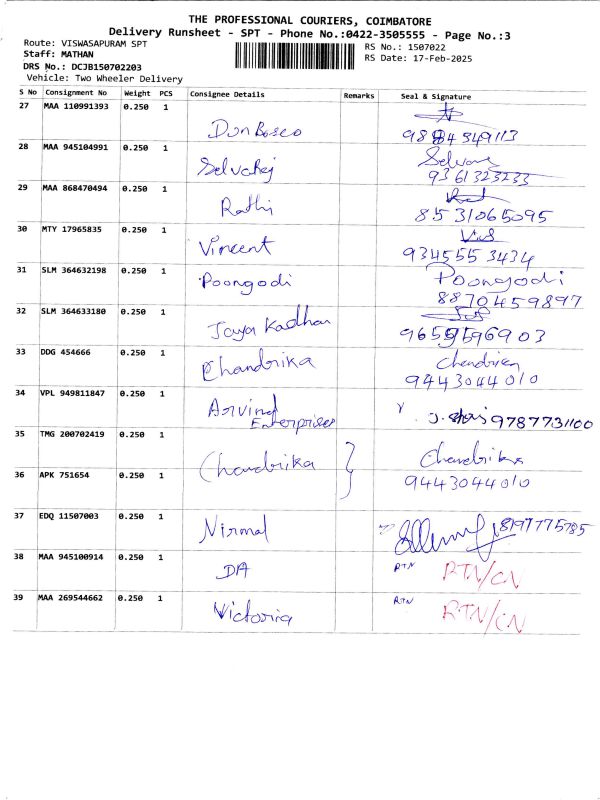 THE PROFESSIONAL COURIERS, COIMBATORE
Delivery Runsheet - SPT - Phone No.:0422-3505555 - Page No.:3
Route: VISWASAPURAM SPT
RS No.: 1507022
Staff: MATHAN
RS Date: 17-Feb-2025
DRS No.: DCJB150702203
Vehicle: Two Wheeler Delivery
S No Consignment No Weight PCS Consignee Details Remarks Seal & Signature
27 MAA 110991393 0.250 1
Don Bosco 9884549113
28 MAA 945104991 0.250 1
Selvaraj 9361323233
29 MAA 868470494 0.250 1
Rathi 8531065095
30 MTY 17965835 0.250 1
Vincent 9345553434
31 SLM 364632198 0.250 1
Poongodi Poongodi
8870459897
32 SLM 364633180 0.250 1
Jaya Kadhar 9659596903
33 DDG 454666 0.250 1
Chandrika
9443044010
34 VPL 949811847 0.250 1
Arvind
Enterprises 9787731100
35 TMG 200702419 0.250 1
Chandrika Chandrika
36 APK 751654 0.250 1
9443044010
37 EDQ 11507003 0.250 1
Nirmal 8197775785
38 MAA 945100914 0.250 1 RTN RTN/CN
DA
39 MAA 269544662 0.250 1 RTN RTN/CN
Victoria